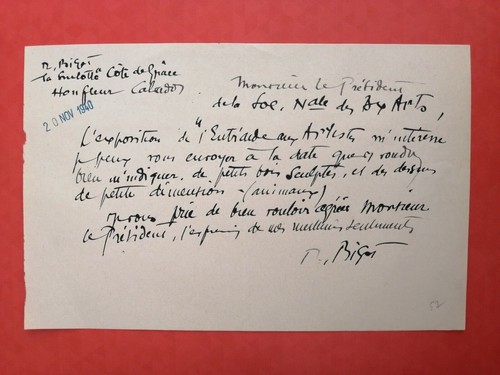 R. Bigot
la Côte de Grâce
Honfleur Calvados
20 NOV 1940
Monsieur le Président
de la Soc. Nale des Bx Arts,
L'exposition de "l'Entr'aide aux Artistes m'intéresse
je peux vous envoyer à la date que voudrez
bien m'indiquer de petits bois sculptés, et des dessins
de petite dimension - (animaux)
je vous prie de bien vouloir agréer Monsieur
le Président, l'expression de mes meilleurs sentiments
R. Bigot